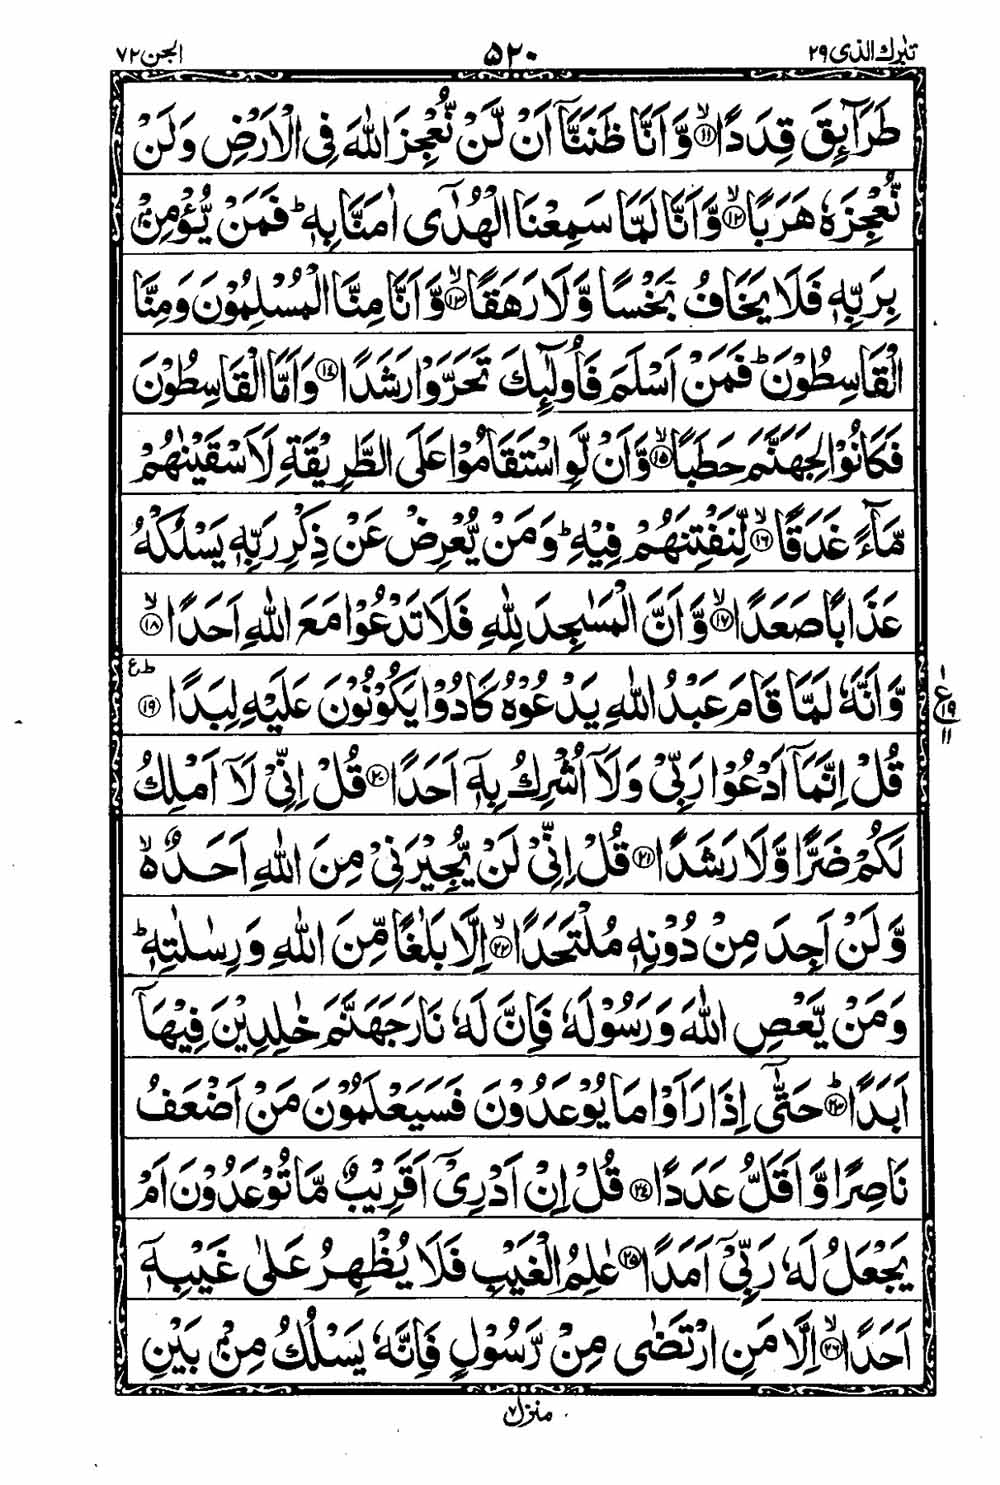 تبٰرك الذی ۲۹ ۵۲۰ الجن ۷۲
طَرَآئِقَ قِدَدًا ۙ﴿۱۱﴾ وَّاَنَّا ظَنَنَّآ اَنْ لَّنْ نُّعْجِزَ اللّٰهَ فِی الْاَرْضِ وَلَنْ
نُّعْجِزَهٗ هَرَبًا ۙ﴿۱۲﴾ وَّاَنَّا لَمَّا سَمِعْنَا الْهُدٰٓی اٰمَنَّا بِهٖ ؕ فَمَنْ یُّؤْمِنْۢ
بِرَبِّهٖ فَلَا یَخَافُ بَخْسًا وَّلَا رَهَقًا ۙ﴿۱۳﴾ وَّاَنَّا مِنَّا الْمُسْلِمُوْنَ وَمِنَّا
الْقَاسِطُوْنَ ؕ فَمَنْ اَسْلَمَ فَاُولٰٓئِكَ تَحَرَّوْا رَشَدًا ﴿۱۴﴾ وَاَمَّا الْقَاسِطُوْنَ
فَكَانُوْا لِجَهَنَّمَ حَطَبًا ۙ﴿۱۵﴾ وَّاَنْ لَّوِ اسْتَقَامُوْا عَلَی الطَّرِیْقَةِ لَاَسْقَیْنٰهُمْ
مَّآءً غَدَقًا ۙ﴿۱۶﴾ لِّنَفْتِنَهُمْ فِیْهِ ؕ وَمَنْ یُّعْرِضْ عَنْ ذِكْرِ رَبِّهٖ یَسْلُكْهُ
عَذَابًا صَعَدًا ۙ﴿۱۷﴾ وَّاَنَّ الْمَسٰجِدَ لِلّٰهِ فَلَا تَدْعُوْا مَعَ اللّٰهِ اَحَدًا ۙ﴿۱۸﴾
وَّاَنَّهٗ لَمَّا قَامَ عَبْدُ اللّٰهِ یَدْعُوْهُ كَادُوْا یَكُوْنُوْنَ عَلَیْهِ لِبَدًا ؕ﴿۱۹﴾ ع
۱ ع ۱۹ ۱۱
قُلْ اِنَّمَآ اَدْعُوْا رَبِّیْ وَلَآ اُشْرِكُ بِهٖٓ اَحَدًا ﴿۲۰﴾ قُلْ اِنِّیْ لَآ اَمْلِكُ
لَكُمْ ضَرًّا وَّلَا رَشَدًا ﴿۲۱﴾ قُلْ اِنِّیْ لَنْ یُّجِیْرَنِیْ مِنَ اللّٰهِ اَحَدٌ ۙ۬
وَّلَنْ اَجِدَ مِنْ دُوْنِهٖ مُلْتَحَدًا ۙ﴿۲۲﴾ اِلَّا بَلٰغًا مِّنَ اللّٰهِ وَرِسٰلٰتِهٖ ؕ
وَمَنْ یَّعْصِ اللّٰهَ وَرَسُوْلَهٗ فَاِنَّ لَهٗ نَارَ جَهَنَّمَ خٰلِدِیْنَ فِیْهَآ
اَبَدًا ؕ﴿۲۳﴾ حَتّٰۤی اِذَا رَاَوْا مَا یُوْعَدُوْنَ فَسَیَعْلَمُوْنَ مَنْ اَضْعَفُ
نَاصِرًا وَّاَقَلُّ عَدَدًا ﴿۲۴﴾ قُلْ اِنْ اَدْرِیْۤ اَقَرِیْبٌ مَّا تُوْعَدُوْنَ اَمْ
یَجْعَلُ لَهٗ رَبِّیْۤ اَمَدًا ﴿۲۵﴾ عٰلِمُ الْغَیْبِ فَلَا یُظْهِرُ عَلٰی غَیْبِهٖٓ
اَحَدًا ۙ﴿۲۶﴾ اِلَّا مَنِ ارْتَضٰی مِنْ رَّسُوْلٍ فَاِنَّهٗ یَسْلُكُ مِنْۢ بَیْنِ
منزل ۷